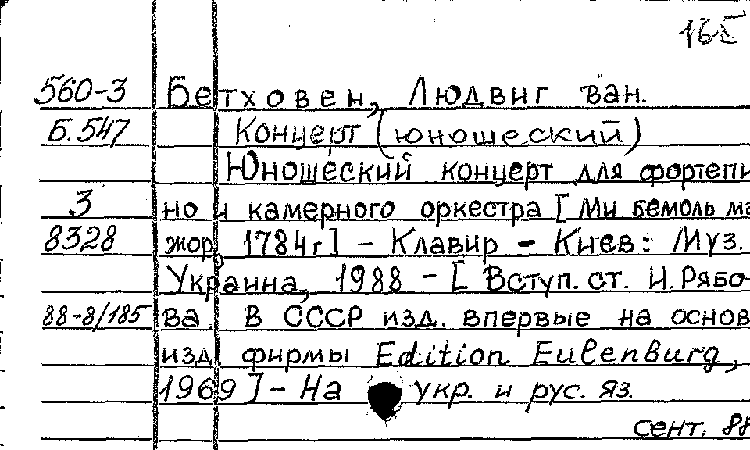 165
560-3 Бетховен, Людвиг ван.
Б.547 Концерт (юношеский)
Юношеский концерт для фортепи
3 но и камерного оркестра [Ми бемоль ма
8328 жор, 1784г] - Клавир - Киев: Муз.
Украина, 1988 - [Вступ. ст. И. Рябо
88-8/185 ва. В СССР изд. впервые на основ
изд фирмы Edition Eulenburg,
1969] - На укр. и рус. яз.
сент. 88